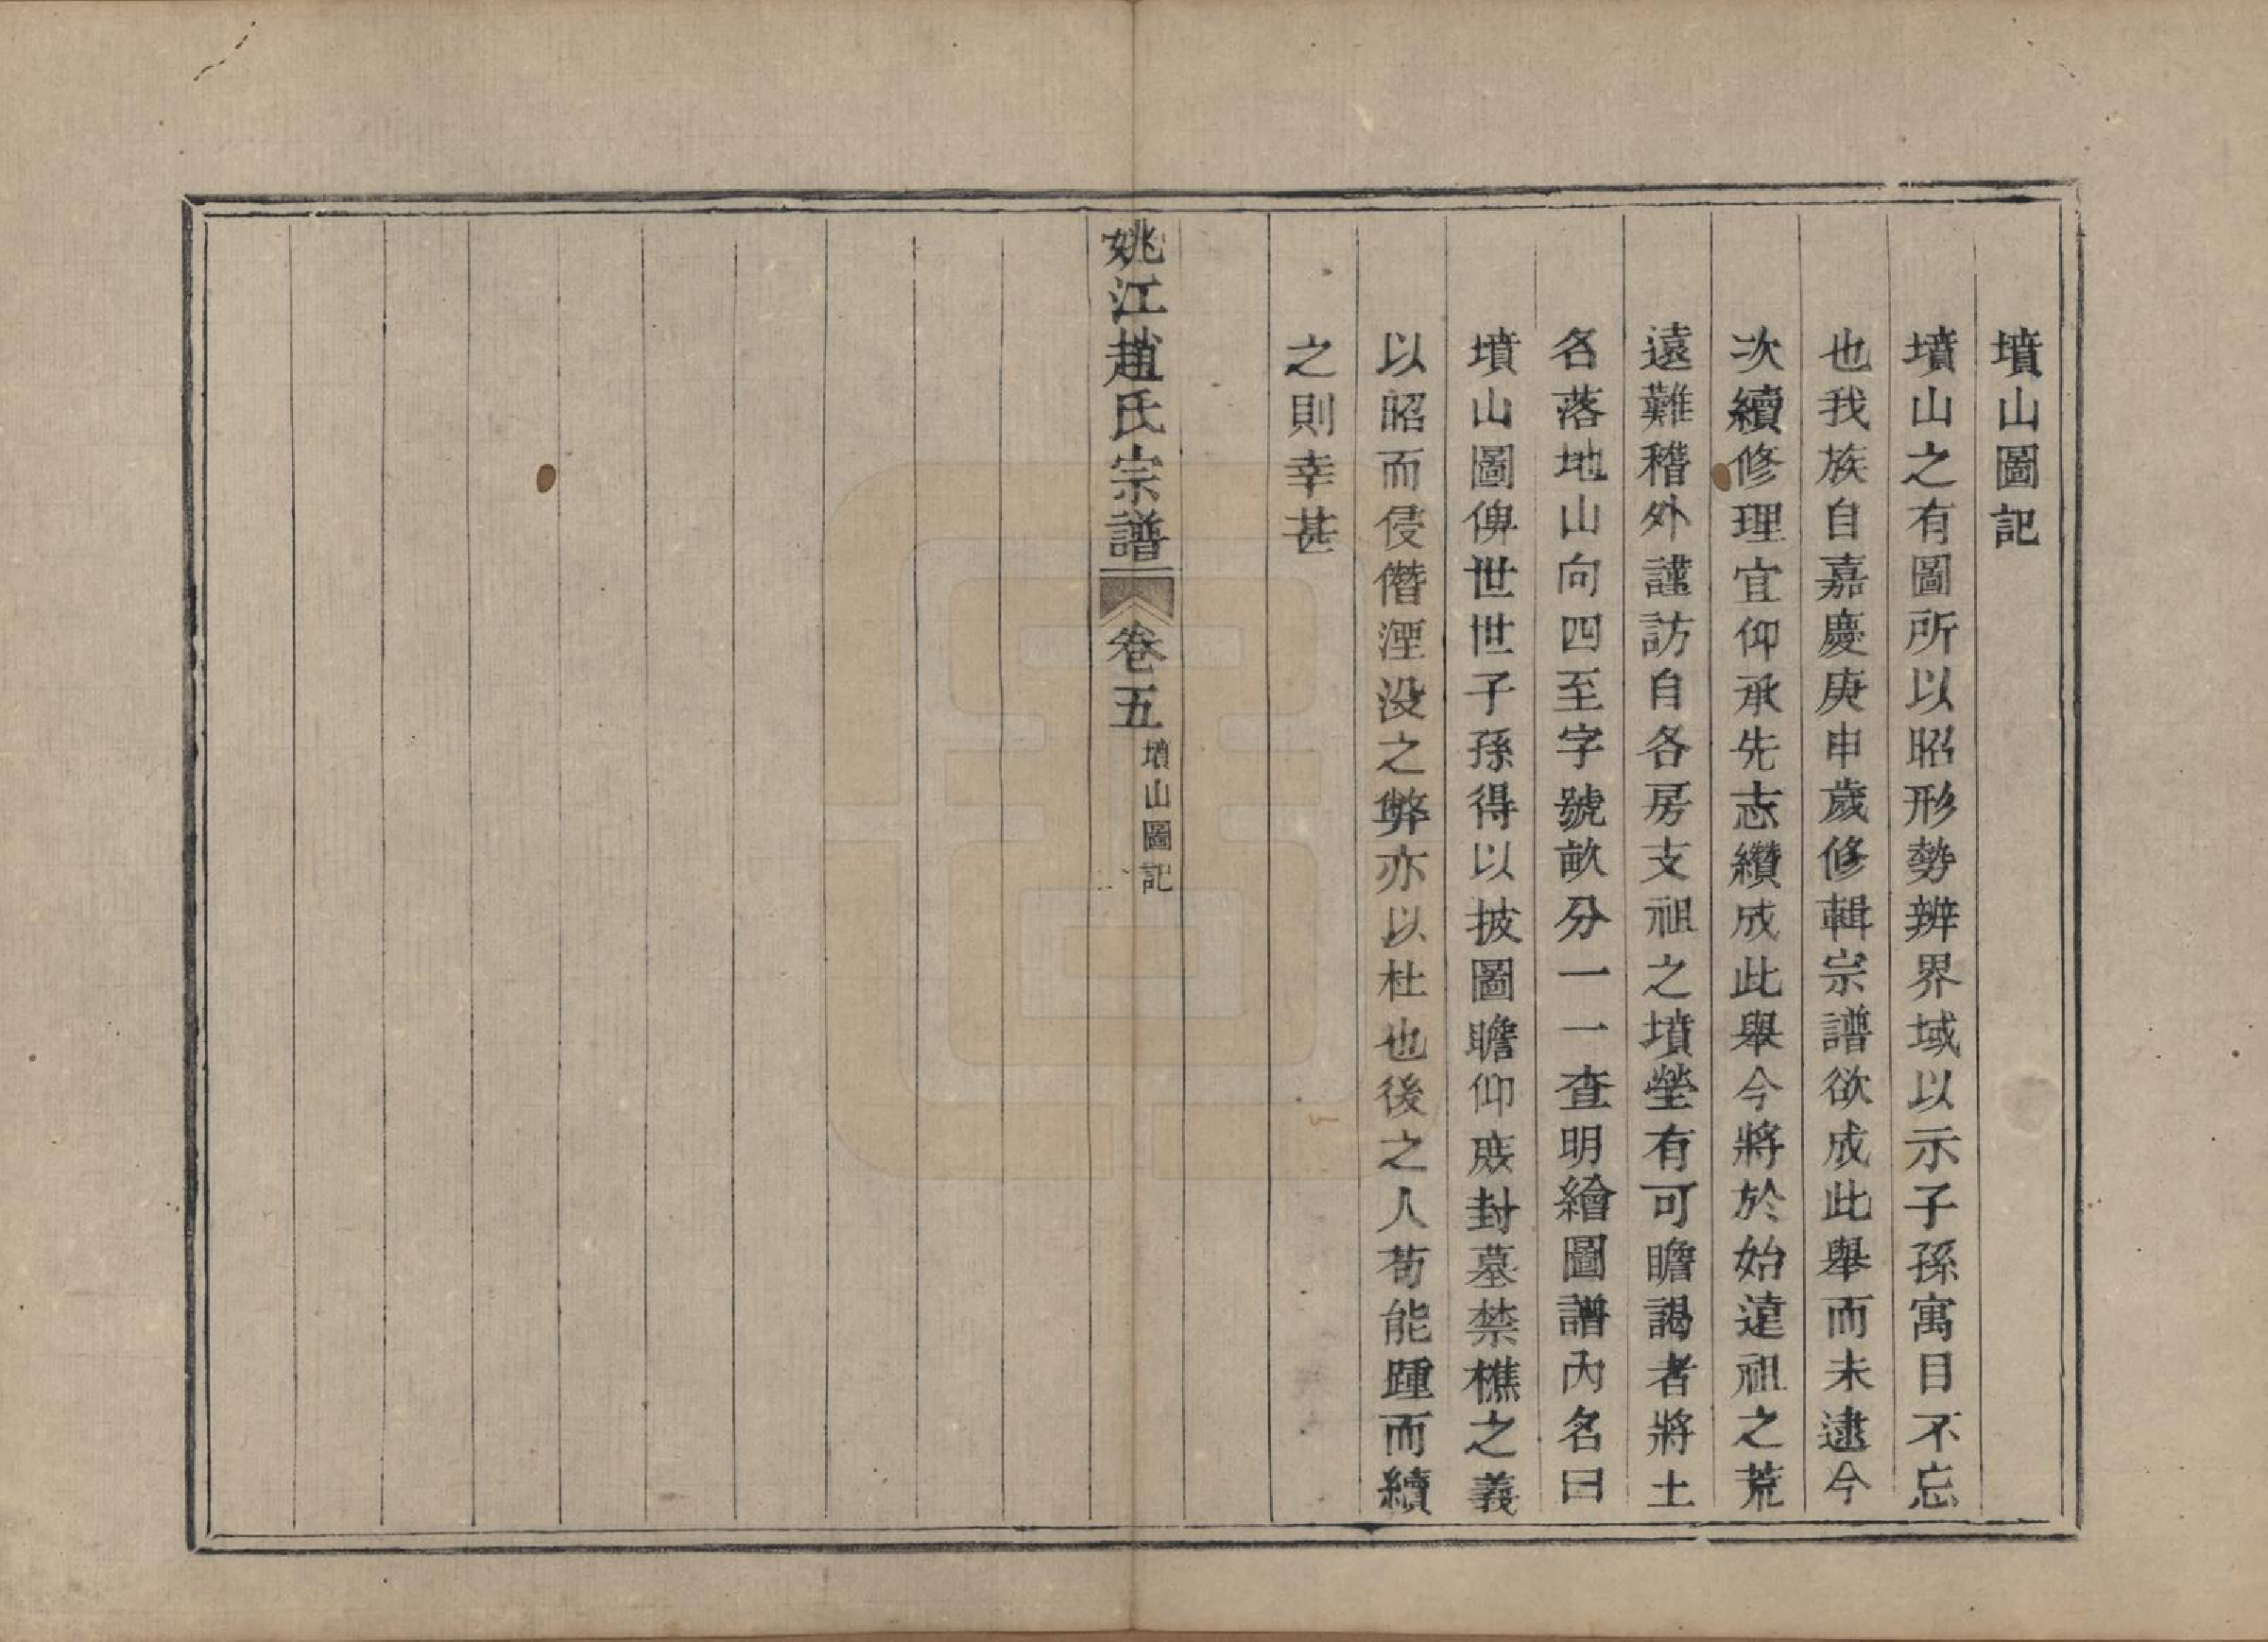 墳山圖記
墳山之有圖所以昭形勢辨界域以示子孫寓目不忘
也我族自嘉慶庚申歲修輯宗譜欲成此舉而未逮今
次續修理宜仰承先志纘成此舉今將於始遠祖之荒
遠難稽外謹訪自各房支祖之墳塋有可瞻謁者將土
名落地山向四至字號畝分一一查明繪圖譜內名曰
墳山圖俾世世子孫得以披圖瞻仰庶封墓禁樵之義
以昭而侵僭湮没之弊亦以杜也後之人苟能踵而續
之則幸甚
姚江趙氏宗譜 卷五 墳山圖記